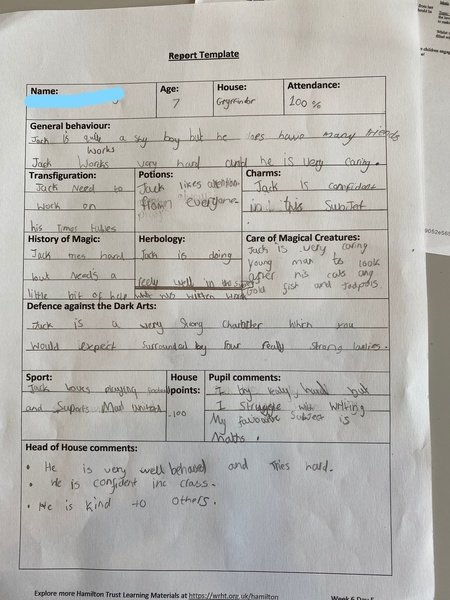 Report Template
Name:
Age:
7
House:
Gryffindor
Attendance:
100%
General behaviour:
Jack is quite a shy boy but he does have many friends
works
Jack Works very hard and he is very caring.
Transfiguration:
Jack need to
work on
his Times tables
Potions:
Jack likes attention
from everyone
Charms:
Jack is confident
in this Subject
History of Magic:
Jack tries hard
but needs a
little bit of help
Herbology:
Jack is doing
really well in the subject
with his written work
Care of Magical Creatures:
Jack is very caring
young man to look
after his cats and
gold fish and tadpols.
Defence against the Dark Arts:
Jack is a very Strong Charibter which you
would expect surrounded by four really strong ladies.
Sport:
Jack loves playing football
and Supports Mad united
House
points:
100
Pupil comments:
I struggle with writing
My favourite subject is
Maths.
Head of House comments:
• He is very well behaved and Tries hard.
• He is confident inc class.
• He is kind to others.
Explore more Hamilton Trust Learning Materials at https://wrht.org.uk/hamilton
Week 6 Day 5